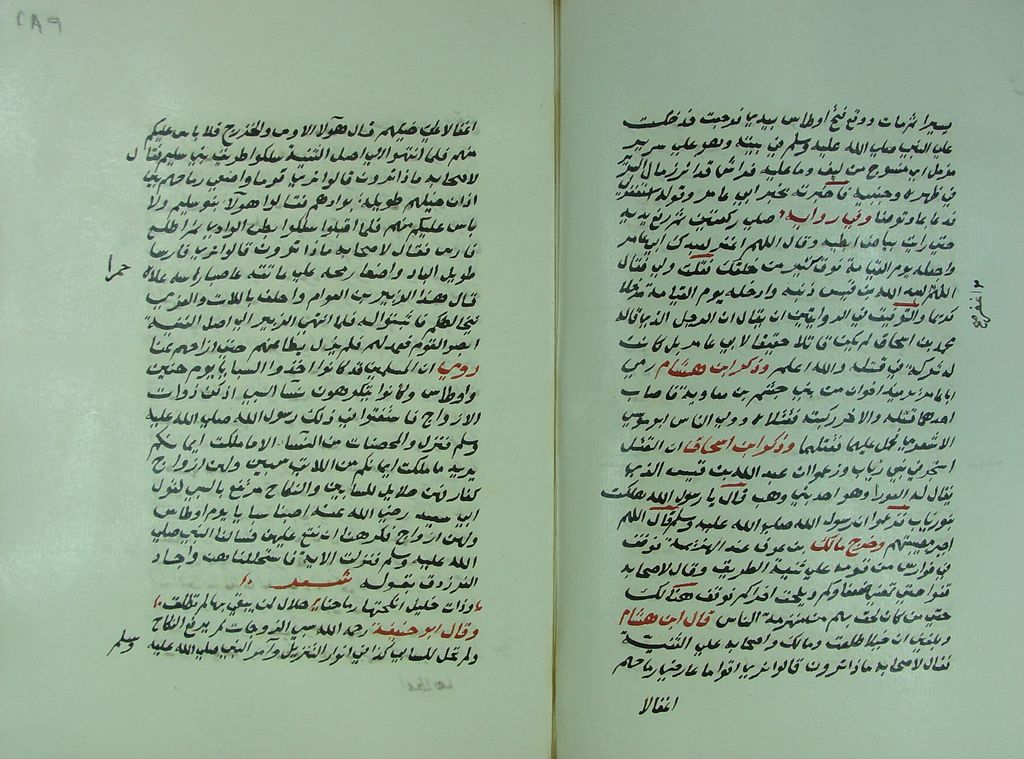 يسيرا ثم مات ووقع فتح أوطاس بيدي فرجعت فدخلت
على النبي صلى الله عليه وسلم في بيته وهو على سرير
مرمل اي منسوج من ليف وما عليه فراش قد اثر رمال السرير
في ظهره وجنبيه فاخبرته بخبر ابي عامر وقوله استغفر لي
فدعا بماء فتوضأ وفي رواية صلى ركعتين ثم رفع يديه
حتى رأيت بياض ابطيه وقال اللهم اغفر لعبيدك ابي عامر
واجعله يوم القيامة فوق كثير من خلقك فقلت ولي فقال
اللهم لعبد الله بن قيس ذنبه وادخله يوم القيامة مدخلا
واغفر صح
كريما والتوفيق في الروايتين ان يقال ان الرجل الذي قاله
محمد بن اسحاق لم يكن قاتلا حقيقة لابي عامر بل كانت
له شركة في قتله والله اعلم وذكر ابن هشام رمى
ابا عامر يومئذ اخوان من بني جشم بن معاوية فاصاب
احدهما قلبه والاخر ركبته فقتلاه وولي الناس ابو موسى
الاشعري فحمل عليهما فقتلهما وذكر ابن اسحاق ان القتل
استحر في بني رياب وزعموا ان عبد الله بن قيس الذي
يقال له العوراء وهو احد بني وهب قال يا رسول الله هلكت
بنو رياب فزعموا ان رسول الله صلى الله عليه وسلم قال اللهم
اجبر مصيبتهم وخرج مالك بن عوف عند الهزيمة فوقف
في فوارس من قومه على ثنية الطريق وقال لاصحابه
قفوا حتى تمضي ضعفاؤكم ويلحق اخراكم فوقف هنالك
حتى من كان لحق بهم من منهزمة الناس قال ابن هشام
وبلغني ان خيلا طلعت ومالك واصحابه على الثنية
فقال لاصحابه ماذا ترون قالوا نرى اقواما عارضي رماحهم
اغفالا
اغفالا على خيلهم قال هؤلاء الاوس والخزرج فلا باس عليكم
منهم فلما انتهوا الى اصل الثنية سلكوا طريق بني سليم فقال
لاصحابه ماذا ترون قالوا نرى قوما واضعي رماحهم بين
اذان خيلهم طويلة بوادهم فقال هؤلاء بنو سليم ولا
باس عليكم منهم فلما اقبلوا سلكوا بطن الوادي ثم اطلع
فارس فقال لاصحابه ماذا ترون قالوا نرى فارسا
طويل الباد واضعا رمحه على عاتقه عاصبا راسه بملاءة
حمرا
قال هذا الزبير بن العوام واحلف باللات والعزى
ليخالطنكم فاثبتوا له فلما انتهى الزبير الى اصل الثنية
ابصر القوم فصمد لهم فلم يزل يطاعنهم حتى ازاحهم عنها
روي ان المسلمين قد كانوا اخذوا السبايا يوم حنين
واوطاس وكانوا يكرهون نساء السبي اذ كن ذوات
الازواج فاستفتوا في ذلك رسول الله صلى الله عليه
وسلم فنزل والمحصنات من النساء الا ما ملكت ايمانكم
يريد ما ملكت ايمانكم من اللاتي سبين ولهن ازواج
كفار فهن حلايل للسابين والنكاح مرتفع بالسبي لقول
ابي سعيد رضي الله عنه اصبنا سبايا يوم اوطاس
ولهن ازواج فكرهنا ان نقع عليهن فسالنا النبي صلى
الله عليه وسلم فنزلت الاية فاستحللناهن واجاد
الفرزدق بقوله شعر
وذات حليل انكحتها رماحنا حلال لمن يبني بها لم تطلق
وقال ابو حنيفة رحمه الله سبي الزوجات لم يرفع النكاح
ولم تحل للسابي كذا في انوار التنزيل وامر النبي صلى الله عليه وسلم